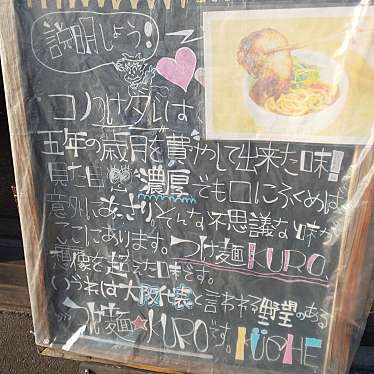 説明しよう!
コノつけダレは
五年の歳月を費やして出来た味!
見た目 濃厚でも口にふくめば
意外にあっさりそんな不思議な味が
ここにあります。つけ麺KURO.
想像を超えた味です。
いづれは大阪代表と言われる野望のある
つけ麺★KUROです。KÜCHE